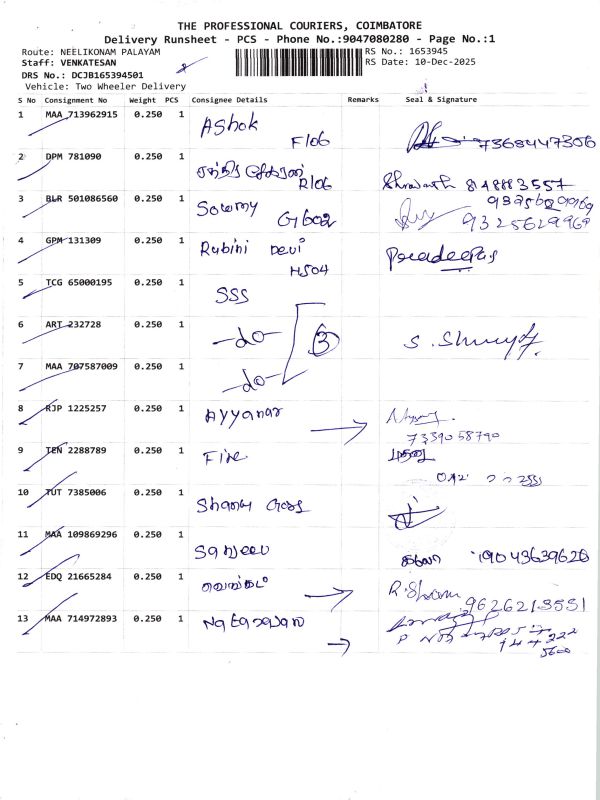 THE PROFESSIONAL COURIERS, COIMBATORE
Delivery Runsheet - PCS - Phone No.:9047080280 - Page No.:1
Route: NEELIKONAM PALAYAM RS No.: 1653945
Staff: VENKATESAN RS Date: 10-Dec-2025
DRS No.: DCJB165394501
Vehicle: Two Wheeler Delivery
S No Consignment No Weight PCS Consignee Details Remarks Seal & Signature
1 MAA 713962915 0.250 1 Ashok F106 7368447306
2 DPM 781090 0.250 1 R106 818883557
3 BLR 501086560 0.250 1 Sowmy G602 9325629969
4 GPM 131309 0.250 1 Rubini Devi H504 Pradeep
5 TCG 65000195 0.250 1 SSS
6 ART 232728 0.250 1 -do- 3 S.
7 MAA 707587009 0.250 1 -do-
8 RJP 1225257 0.250 1 Ayyanar
7339058790
9 TEN 2288789 0.250 1 Fire
10 TUT 7385006 0.250 1
11 MAA 109869296 0.250 1 19043639620
12 EDQ 21665284 0.250 1 வெங்கட் R. 9626213551
13 MAA 714972893 0.250 1 Natarajan